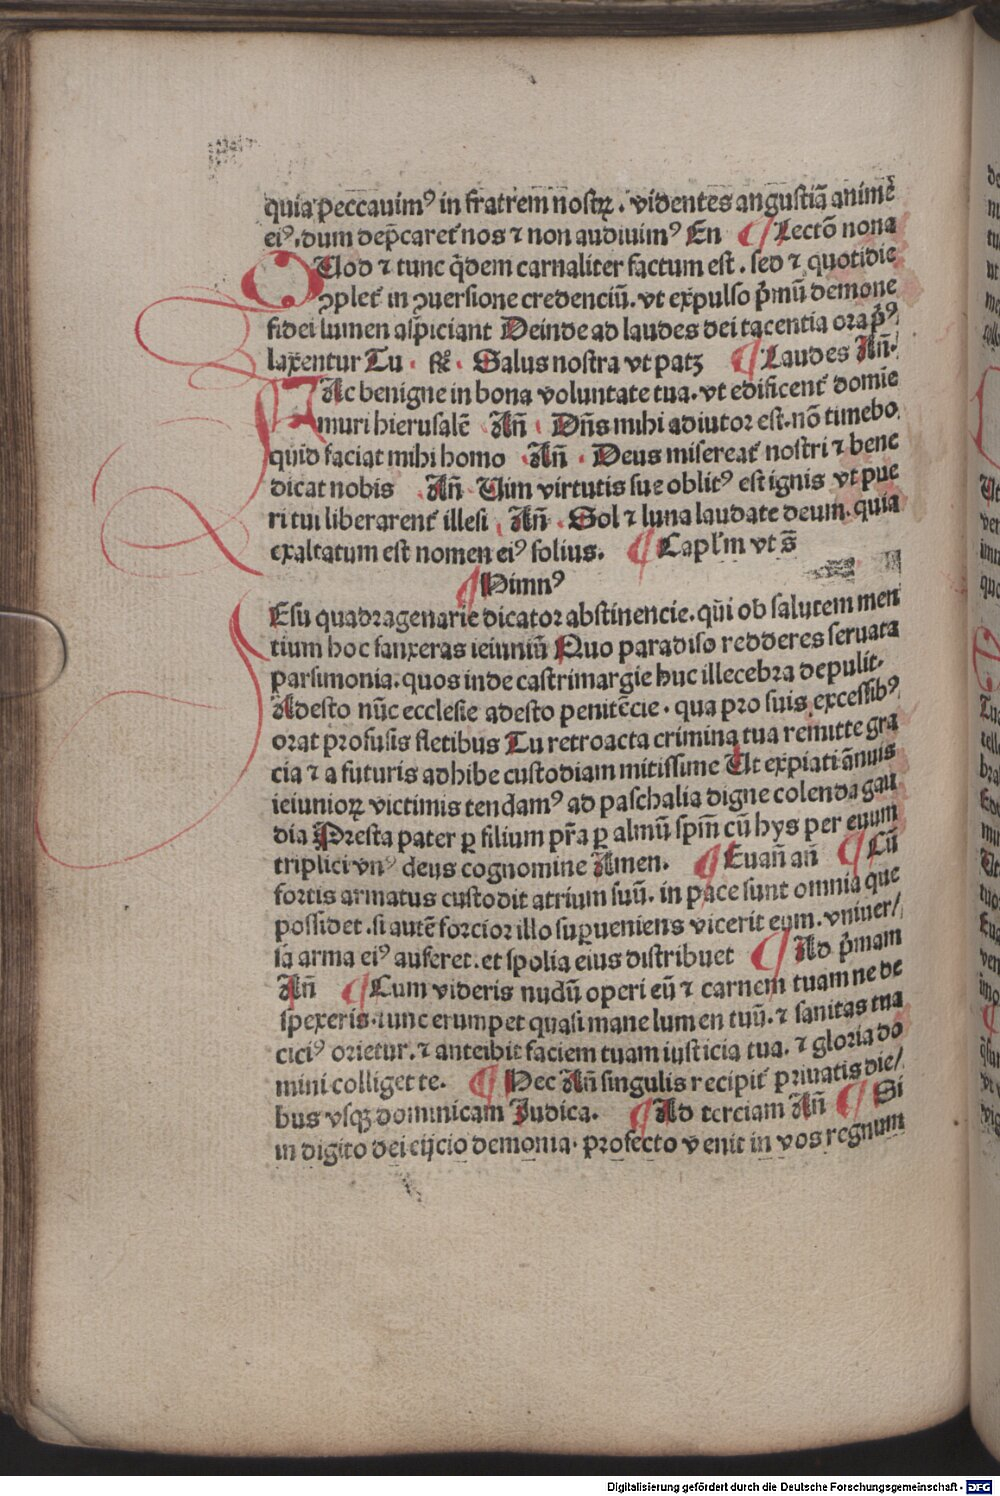 quia peccauimꝰ in fratrem nostꝝ. videntes angustiã anime
eiꝰ. dum dep̃caret᷑ nos ⁊ non audiuimꝰ En ¶ Lectõ nona
QUod ⁊ tunc q̃dem carnaliter factum est. sed ⁊ quotidie
ꝯplet᷑ in ꝯuersione credenciũ. vt expulso p̃mũ demone
fidei lumen aspiciant Deinde ad laudes dei tacentia ora p̃ꝰ
laxentur Tu · ℟ · Salus nostra vt patꝫ ¶ Laudes Añ.
FAc benigne in bona voluntate tua. vt edificent᷑ domie
muri hierusalẽ Añ · Dñs mihi adiutor est. nõ timebo
quid faciat mihi homo Añ · Deus misereat᷑ nostri ⁊ bene
dicat nobis Añ Uim virtutis sue oblitꝰ est ignis vt pue
ri tui liberarent᷑ illesi Añ · Sol ⁊ luna laudate deum. quia
exaltatum est nomen eiꝰ solius. ¶ Capl'm vt s̃
¶ Himnꝰ
IEsu quadragenarie dicator abstinencie. qui ob salutem men
tium hoc sanxeras ieiuniũ Quo paradiso redderes seruata
parsimonia. quos inde castrimargie huc illecebra depulit.
Adesto nũc ecclesie adesto penitẽcie. qua pro suis excessibꝰ
orat profusis fletibus Tu retroacta crimina tua remitte gra
cia ⁊ a futuris adhibe custodiam mitissime Ut expiati ãnuis
ieiunioꝝ victimis tendamꝰ ad paschalia digne colenda gau
dia Presta pater ꝑ filium pr̃a ꝑ almũ spm̃ cũ hys per euum
triplici vnꝰ deus cognomine Amen. ¶ Euañ añ ¶ Cũ
fortis armatus custodit atrium suũ. in pace sunt omnia que
possidet. si autẽ forcior illo suꝑueniens vicerit eum. vniuer/
sa arma eiꝰ auferet. et spolia eius distribuet ¶ Ad p̃mam
Añ ¶ Cum videris nudũ operi eũ ⁊ carnem tuam ne de
spexeris. tunc erumpet quasi mane lumen tuũ. ⁊ sanitas tua
ciciꝰ orietur. ⁊ anteibit faciem tuam iusticia tua. ⁊ gloria do
mini colliget te. ¶ Hec Añ singulis recipit᷑ priuatis die/
bus vsqꝫ dominicam Judica. ¶ Ad terciam Añ ¶ Si
in digito dei eijcio demonia. profecto venit in vos regnum
Digitalisierung gefördert durch die Deutsche Forschungsgemeinschaft - DFG